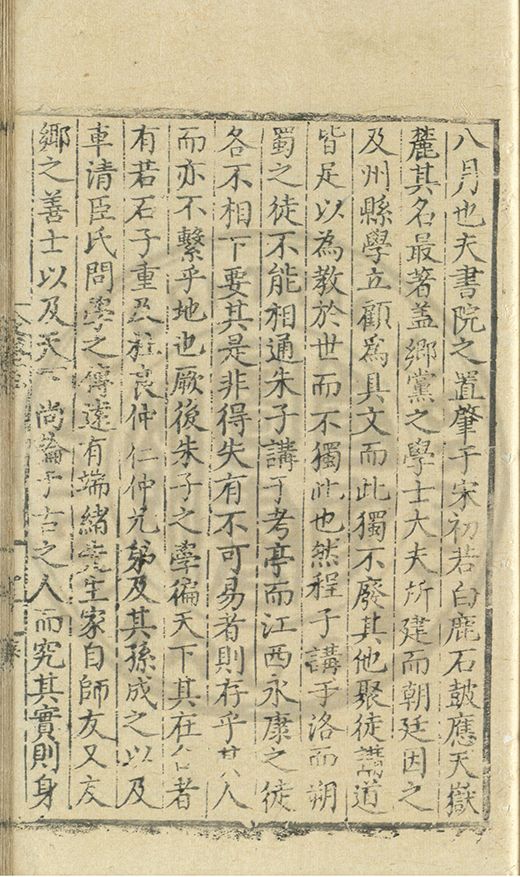 八月也夫書院之置肇于宋初若白鹿石皷應天嶽
麓其名最著盖鄉黨之學士大夫所建而朝廷因之
及州縣學立顧爲具文而此獨不廢其他聚徒講道
皆足以為教於世而不獨此也然程子講于洛而朔
蜀之徒不能相通朱子講于考亭而江西永康之徒
各不相下要其是非得失有不可易者則存乎其人
而亦不繫乎地也厥後朱子之學徧天下其在台者
有若石子重及杜良仲仁仲兄弟及其孫成之以及
車清臣氏問學之傳遠有端緒先生家自師友又友
鄉之善士以及天下尚論于古之人而究其實則身